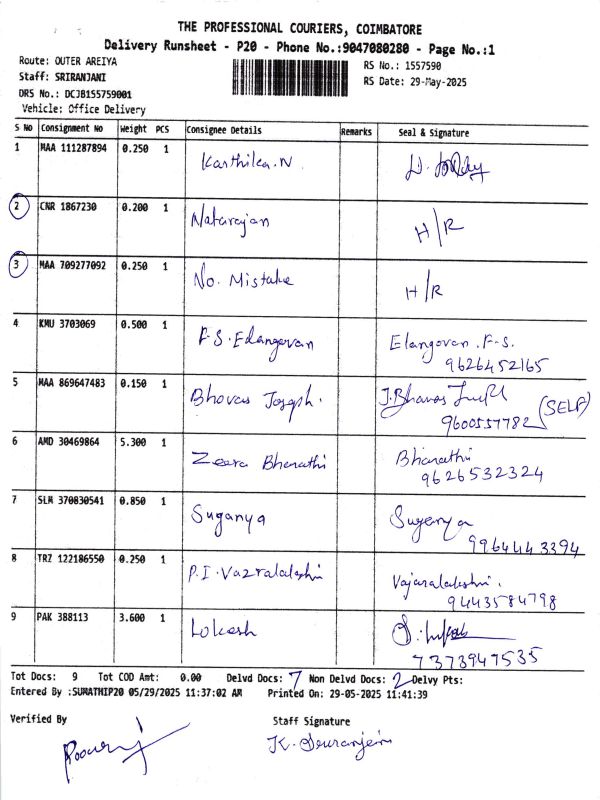 THE PROFESSIONAL COURIERS, COIMBATORE
Delivery Runsheet - P20 - Phone No.:9047080280 - Page No.:1
Route: OUTER AREIYA
Staff: SRIRANJANI
DRS No.: DCJB155759001
Vehicle: Office Delivery
RS No.: 1557590
RS Date: 29-May-2025
S No Consignment No Weight PCS Consignee Details Remarks Seal & Signature
1 MAA 111287894 0.250 1 Karthika.N
2 CNR 1867230 0.200 1 Natarajan H/R
3 MAA 709277092 0.250 1 No. Mistake H/R
4 KMU 3703069 0.500 1 F.S.Elangovan Elangovan.F-S.
9626452165
5 MAA 869647483 0.150 1 Bhovas Joseph. J.Bhavas
9600557782 (SELF)
6 AMD 30469864 5.300 1 Zeera Bharathi Bharathi
9626532324
7 SLM 370830541 0.850 1 Suganya Suganya
9964443394
8 TRZ 122186550 0.250 1 P.I.Vazralakshmi Vajaralakshmi.
9443584798
9 PAK 388113 3.600 1 Lokesh
7373947535
Tot Docs: 9 Tot COD Amt: 0.00 Delvd Docs: 7 Non Delvd Docs: 2 Delvy Pts:
Entered By :SUMATHIP20 05/29/2025 11:37:02 AM Printed On: 29-05-2025 11:41:39
Verified By
Staff Signature